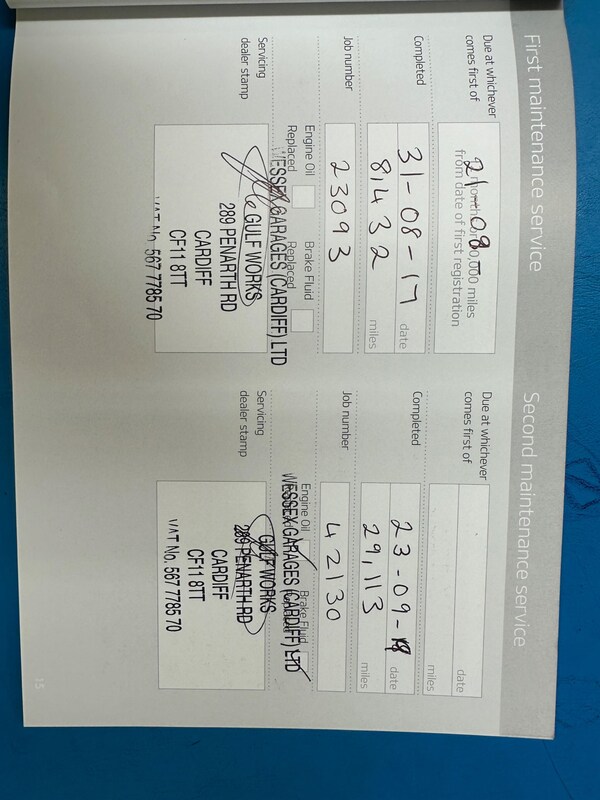 First maintenance service
Due at whichever
comes first of
21-08-
months or 10,000 miles
from date of first registration
Completed
31-08-17 date
8,432 miles
Job number
23093
Engine Oil
Replaced
Brake Fluid
Replaced
Servicing
dealer stamp
WESSEX GARAGES (CARDIFF) LTD
GULF WORKS
289 PENARTH RD
CARDIFF
CF11 8TT
VAT No. 567 7785 70
Second maintenance service
Due at whichever
comes first of
date
miles
Completed
23-09- date
29,113 miles
Job number
42130
Engine Oil
Brake Fluid
Servicing
dealer stamp
WESSEX GARAGES (CARDIFF) LTD
GULF WORKS
289 PENARTH RD
CARDIFF
CF11 8TT
VAT No. 567 7785 70
15